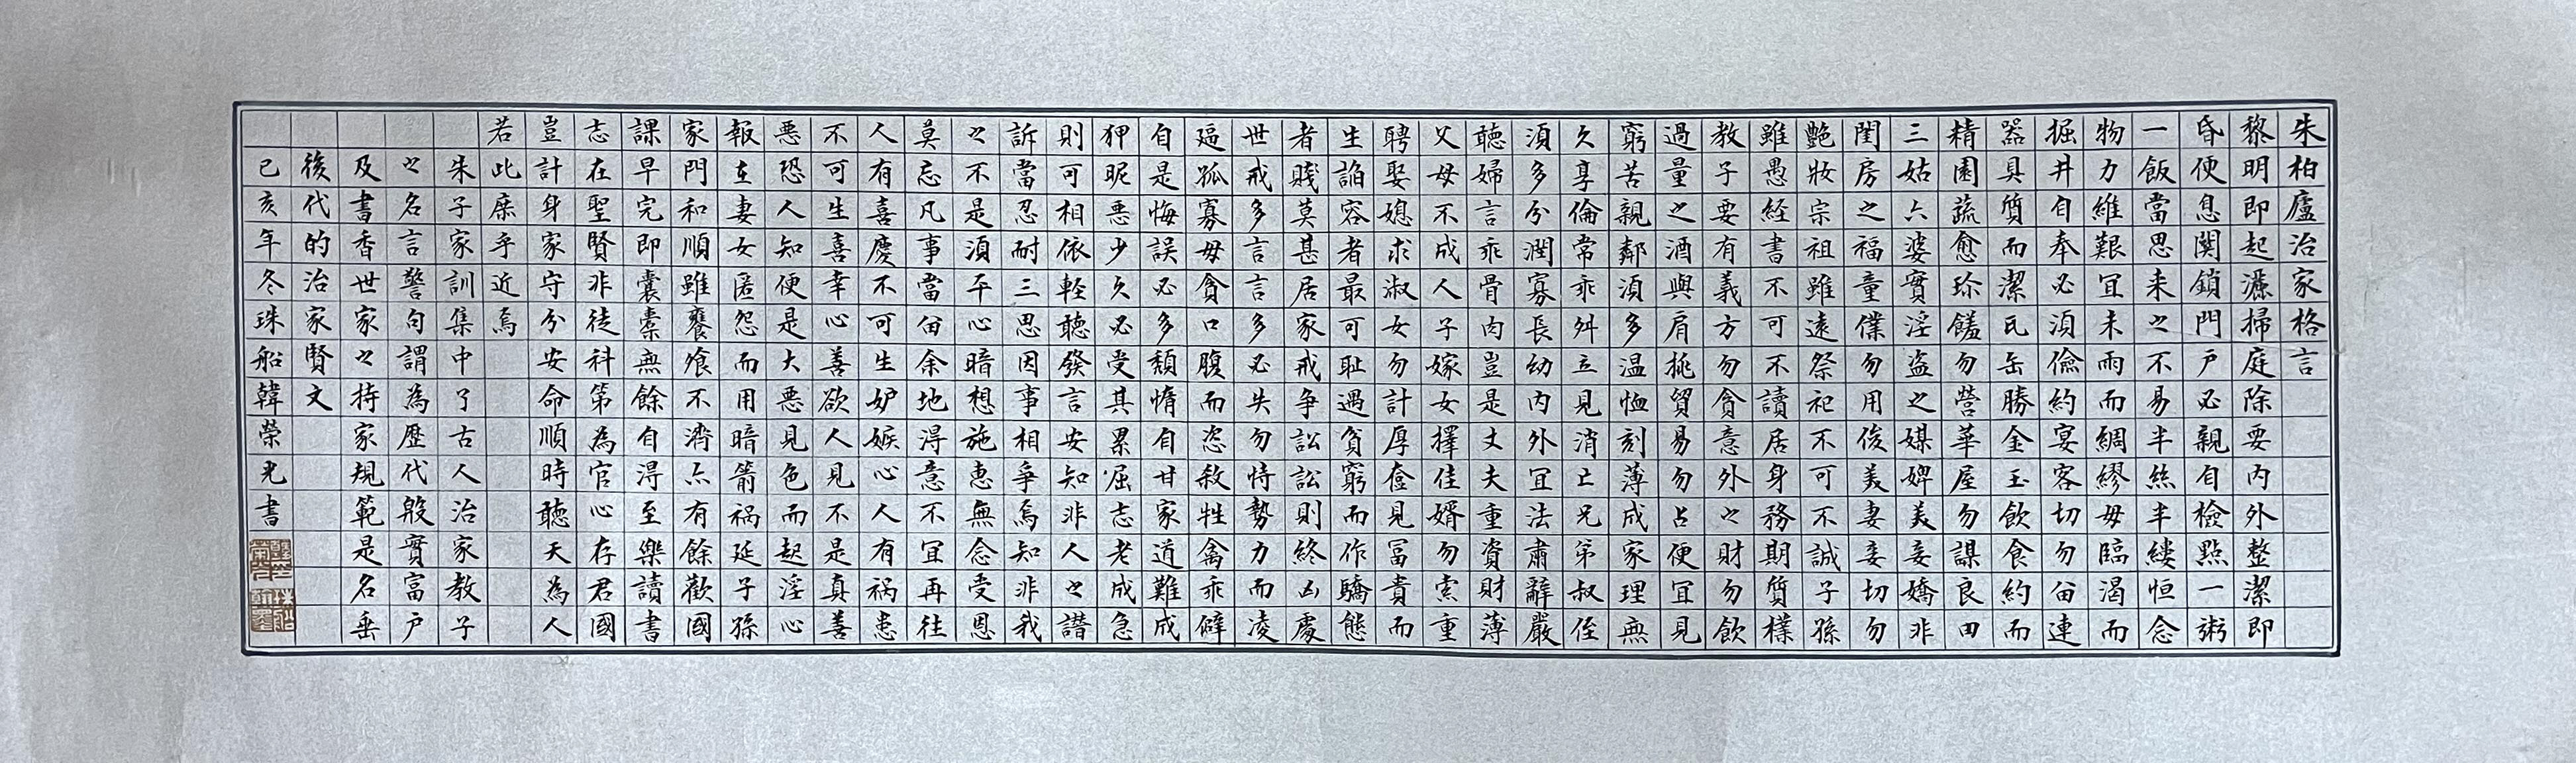 朱柏廬治家格言
黎明即起灑掃庭除要內外整潔即
昏便息関鎖門戶必親自檢點一粥
一飯當思来之不易半絲半縷恒念
物力維艱宜未雨而綢繆毋臨渴而
掘井自奉必須儉約宴客切勿留連
器具質而潔瓦缶勝金玉飲食約而
精園蔬愈珍饈勿營華屋勿謀良田
三姑六婆實淫盜之媒婢美妾嬌非
閨房之福童僕勿用俊美妻妾切勿
艷妝宗祖雖遠祭祀不可不誠子孫
雖愚經書不可不讀居身務期質樸
教子要有義方勿貪意外之財勿飲
過量之酒與肩挑貿易勿占便宜見
窮苦親鄰須多温恤刻薄成家理無
久享倫常乖舛立見消亡兄弟叔侄
須多分潤寡長幼內外宜法肅辭嚴
聽婦言乖骨肉豈是丈夫重資財薄
父母不成人子嫁女擇佳婿勿索重
聘娶媳求淑女勿計厚奩見富貴而
生諂容者最可恥遇貧窮而作驕態
者賤莫甚居家戒争訟訟則終凶處
世戒多言言多必失勿恃勢力而凌
逼孤寡毋貪口腹而恣殺牲禽乖僻
自是悔誤必多頹惰自甘家道難成
狎昵惡少久必受其累屈志老成急
則可相依輕聽發言安知非人之譖
訴當忍耐三思因事相爭焉知非我
之不是須平心暗想施惠無念受恩
莫忘凡事當留余地得意不宜再往
人有喜慶不可生妒嫉心人有禍患
不可生喜幸心善欲人見不是真善
惡恐人知便是大惡見色而起淫心
報在妻女匿怨而用暗箭禍延子孫
家門和順雖饔飧不濟亦有餘歡國
課早完即囊橐無餘自得至樂讀書
志在聖賢非徒科第為官心存君國
豈計身家守分安命順時聽天為人
若此庶乎近焉
朱子家訓集中了古人治家教子
之名言警句謂為歷代殷實富戶
及書香世家之持家規範是名垂
後代的治家賢文
己亥年冬珠船韓榮光書